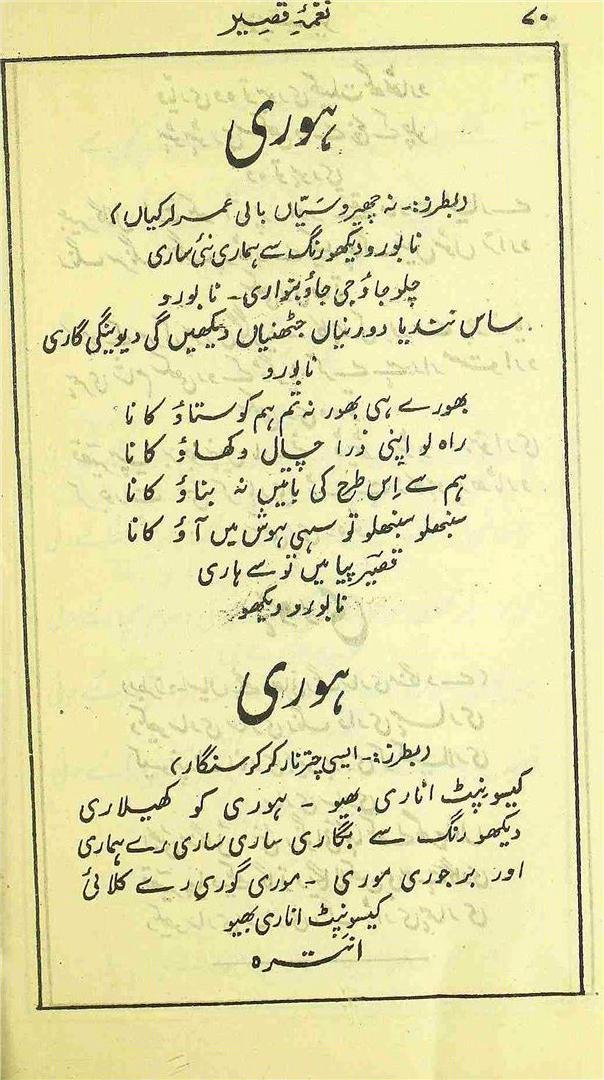 ۷۰ نغمۂ قصیر
ہوری
(بطرز:۔ نہ چھیڑو سَیّاں بالی عمر لرکیاں)
نا بورو دیکھو رنگ سے ہماری نئی ساری
چلو جاؤ جی جاؤ بنواری۔ نا بورو
ساس نندیا دورنیاں جٹھنیاں دیکھیں گی دیوینگی گاری
نا بورو
بھورے ہی بھور نہ تم ہم کو ستاؤ کانا
راہ لو اپنی ذرا چال دکھاؤ کانا
ہم سے اِس طرح کی باتیں نہ بناؤ کانا
سنبھلو سنبھلو تو سہی ہوش میں آؤ کانا
قصیر پیا میں تو سے ہاری
نا بورو دیکھو
ہوری
(بطرز:۔ ایسی چتر نار کر کر سنگار)
کیسو نپٹ اناری بھیو ۔ ہوری کو کھیلاری
دیکھو رنگ سے بگاری ساری ساری رے ہماری
اور برجوری موری ۔ موری گوری رے کلائی
کیسو نپٹ اناری بھیو
انترہ